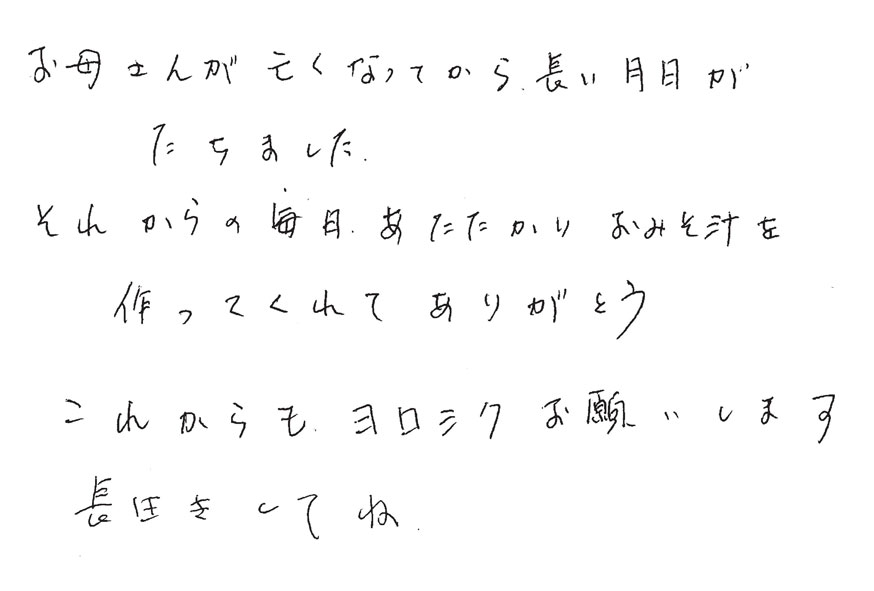 お母さんが亡くなってから.長い月日が
たちました.
それからの毎日.あたたかい おみそ汁を
作ってくれてありがとう
これからも.ヨロシクお願いします
長生きしてね.